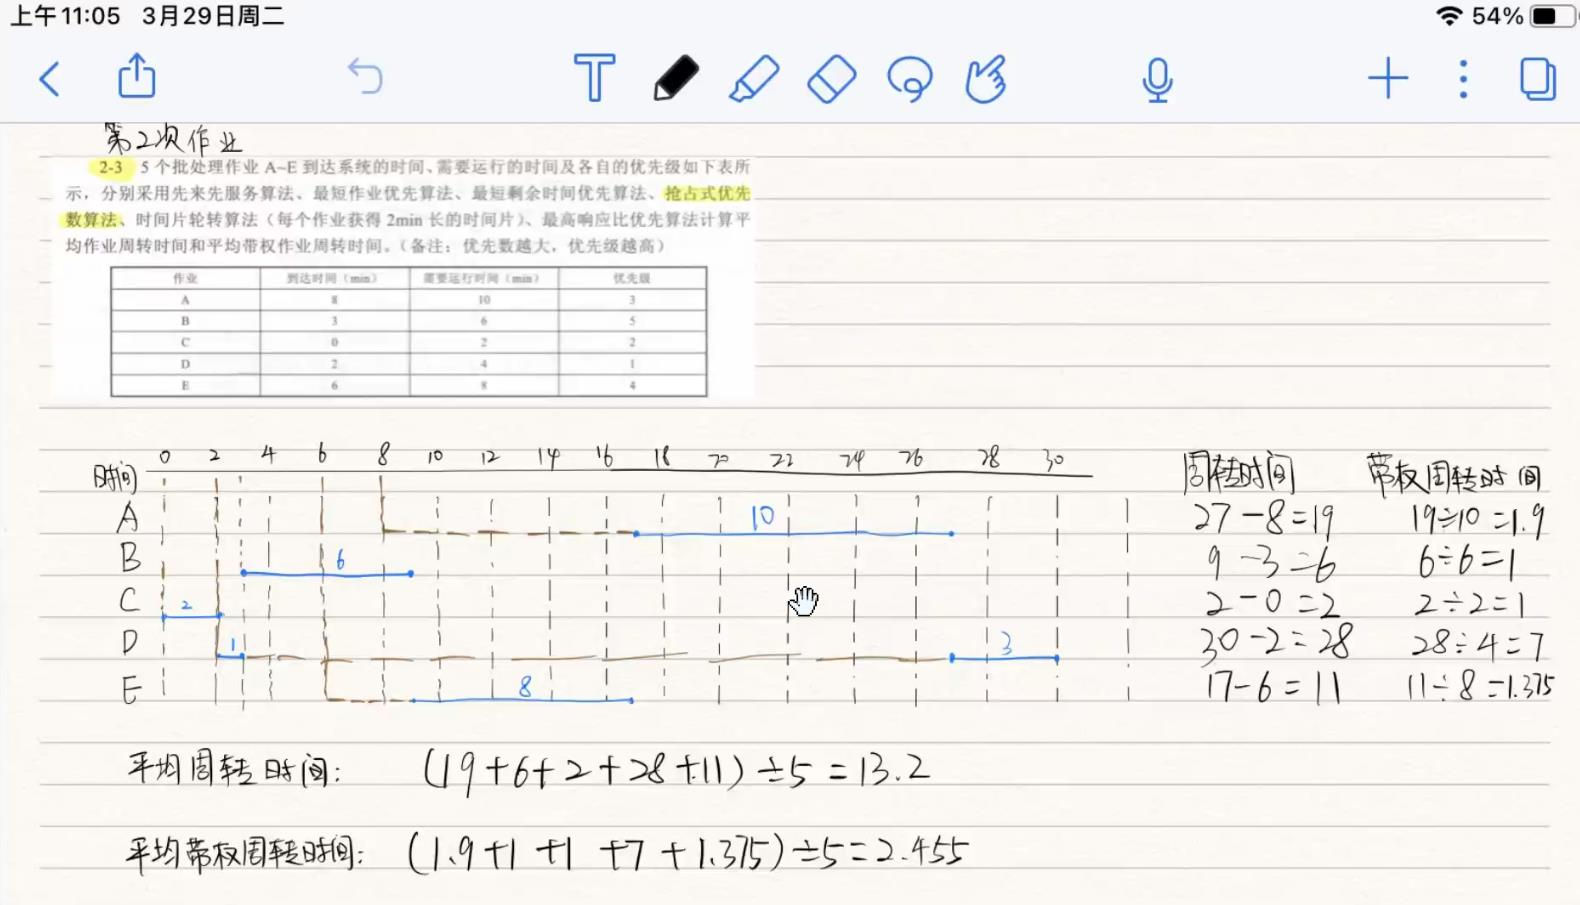 上午11:05 3月29日周二 54%
第2次作业
2-3 5 个批处理作业 A~E 到达系统的时间、需要运行的时间及各自的优先级如下表所
示，分别采用先来先服务算法、最短作业优先算法、最短剩余时间优先算法、抢占式优先
数算法、时间片轮转算法（每个作业获得 2min 长的时间片）、最高响应比优先算法计算平
均作业周转时间和平均带权作业周转时间。（备注：优先数越大，优先级越高）
作业 到达时间（min） 需要运行时间（min） 优先级
A 8 10 3
B 3 6 5
C 0 2 2
D 2 4 1
E 6 8 4
时间 0 2 4 6 8 10 12 14 16 18 20 22 24 26 28 30 周转时间 带权周转时间
A 10 27-8=19 19÷10=1.9
B 6 9-3=6 6÷6=1
C 2 2-0=2 2÷2=1
D 1 3 30-2=28 28÷4=7
E 8 17-6=11 11÷8=1.375
平均周转时间: (19+6+2+28+11)÷5=13.2
平均带权周转时间: (1.9+1+1+7+1.375)÷5=2.455